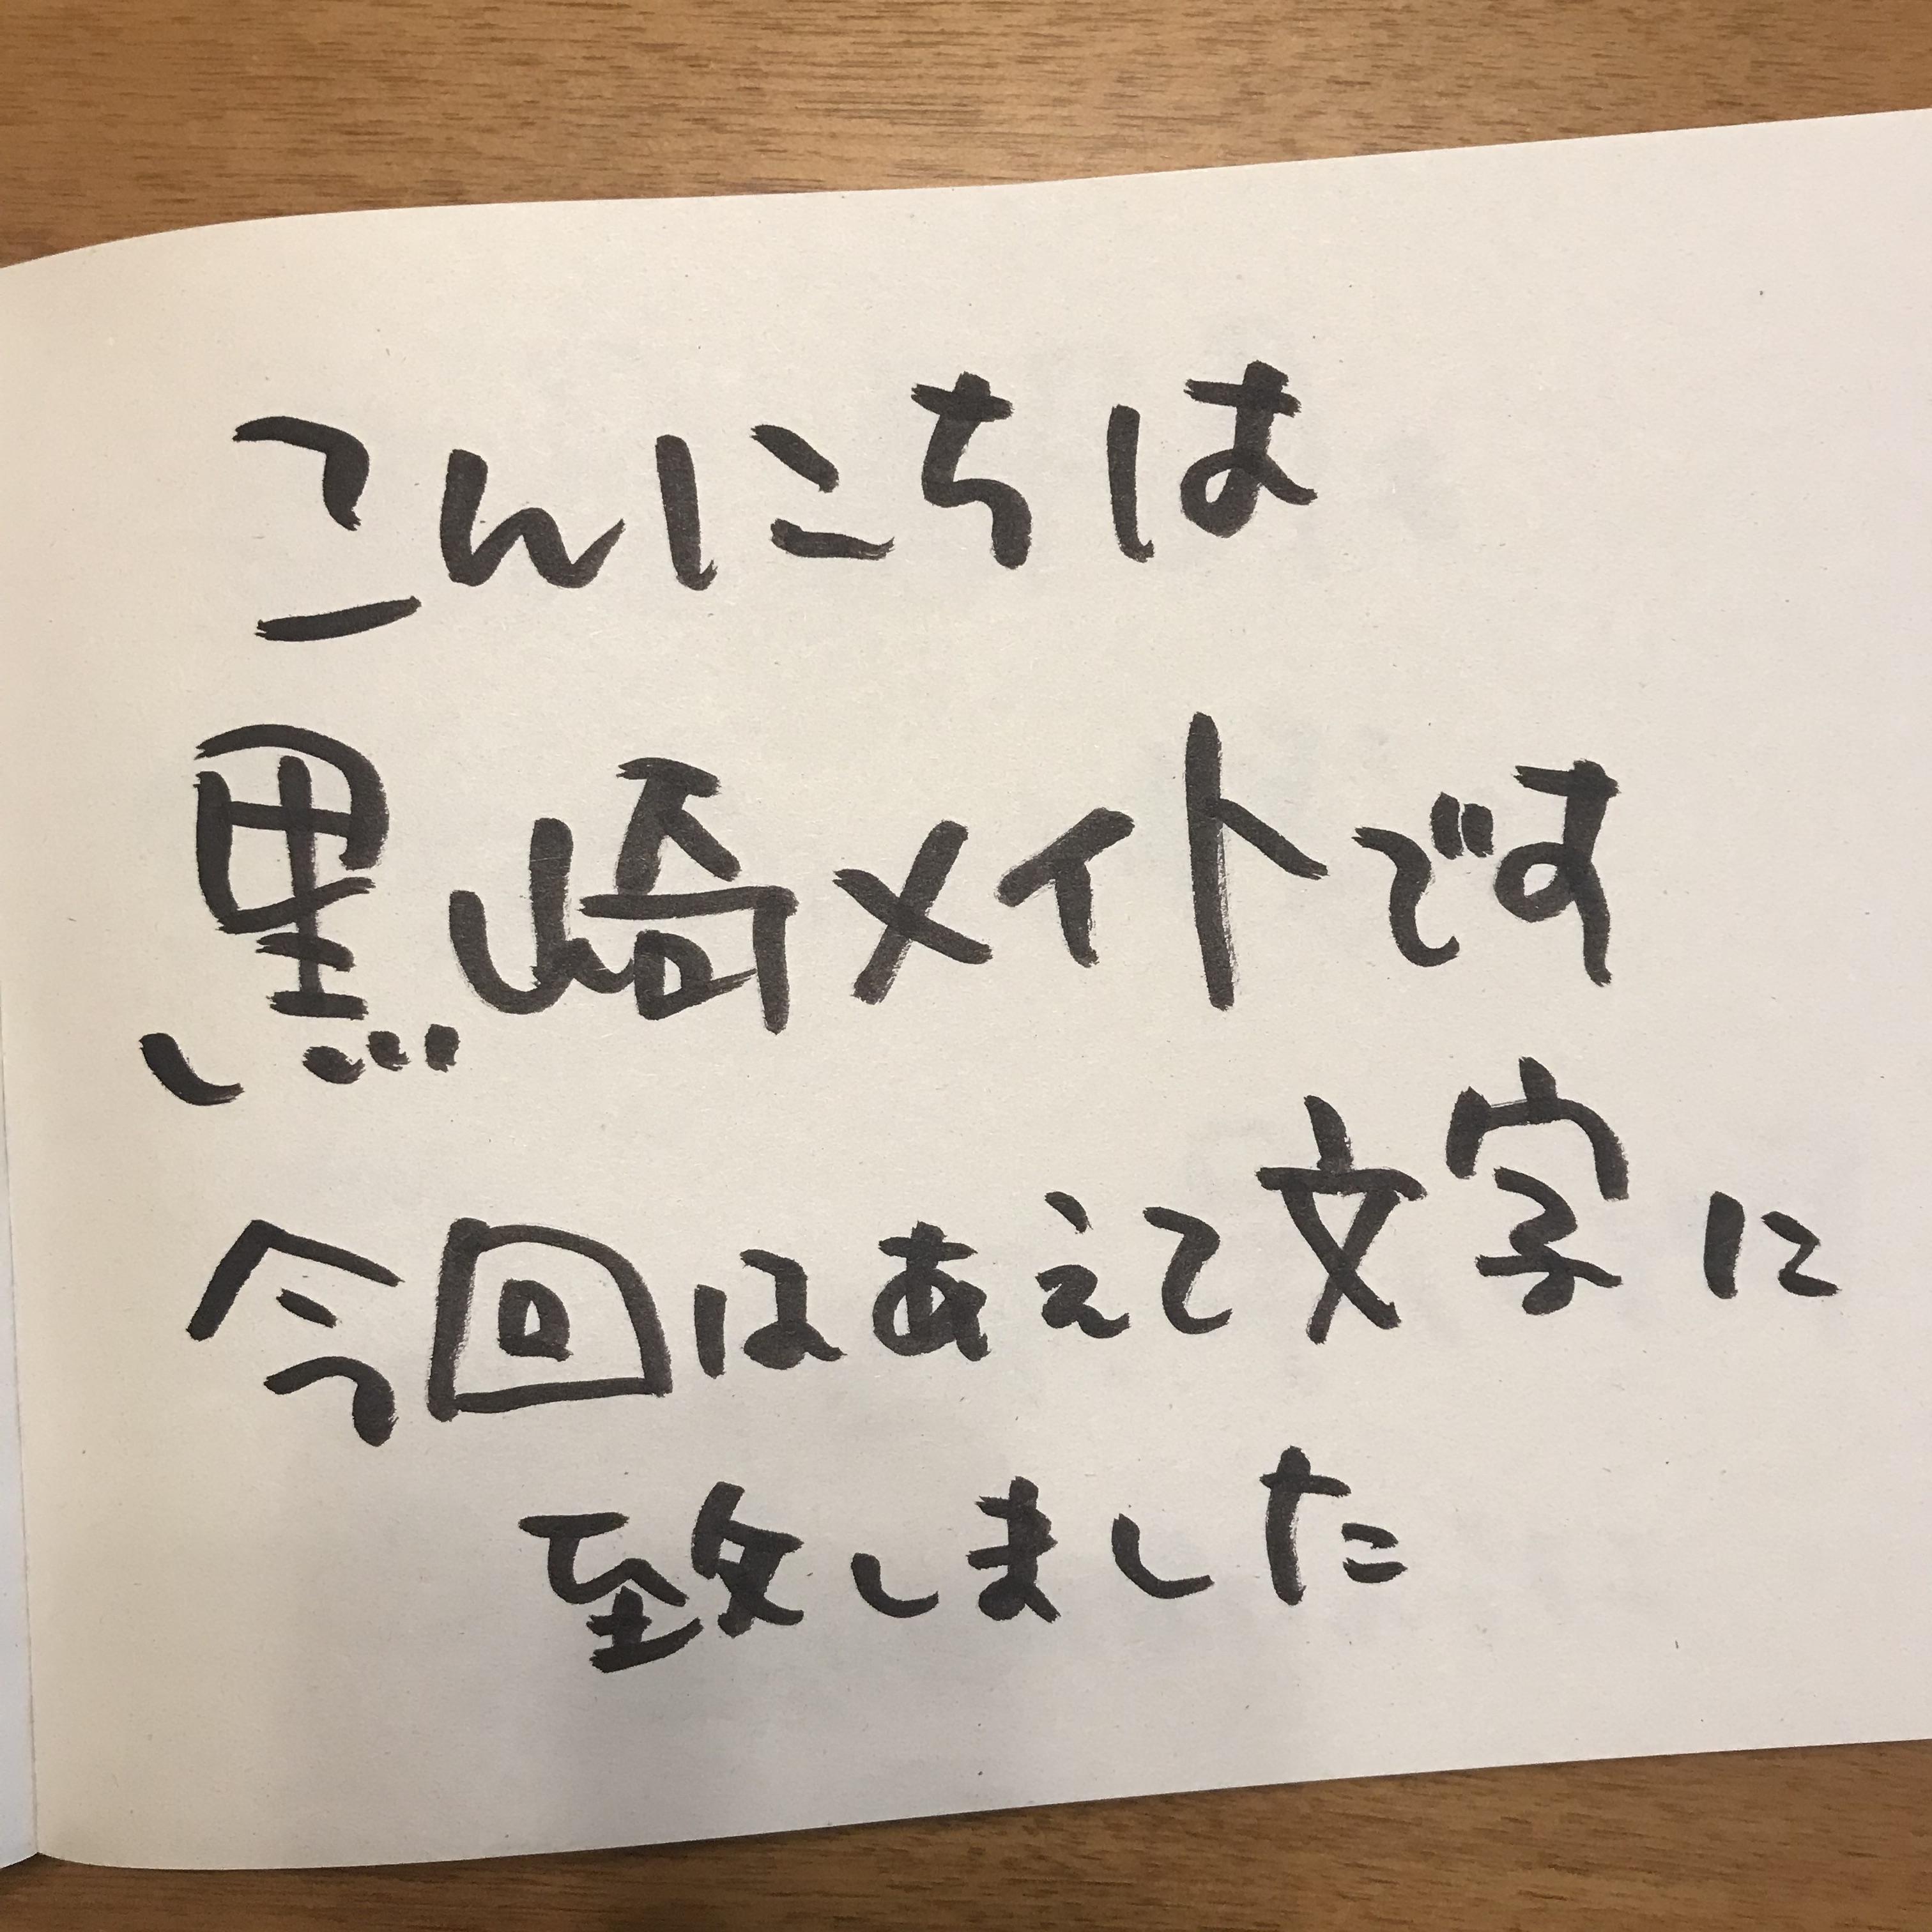 こんにちは
黒崎メイトです
今回はあえて文字に
致しました